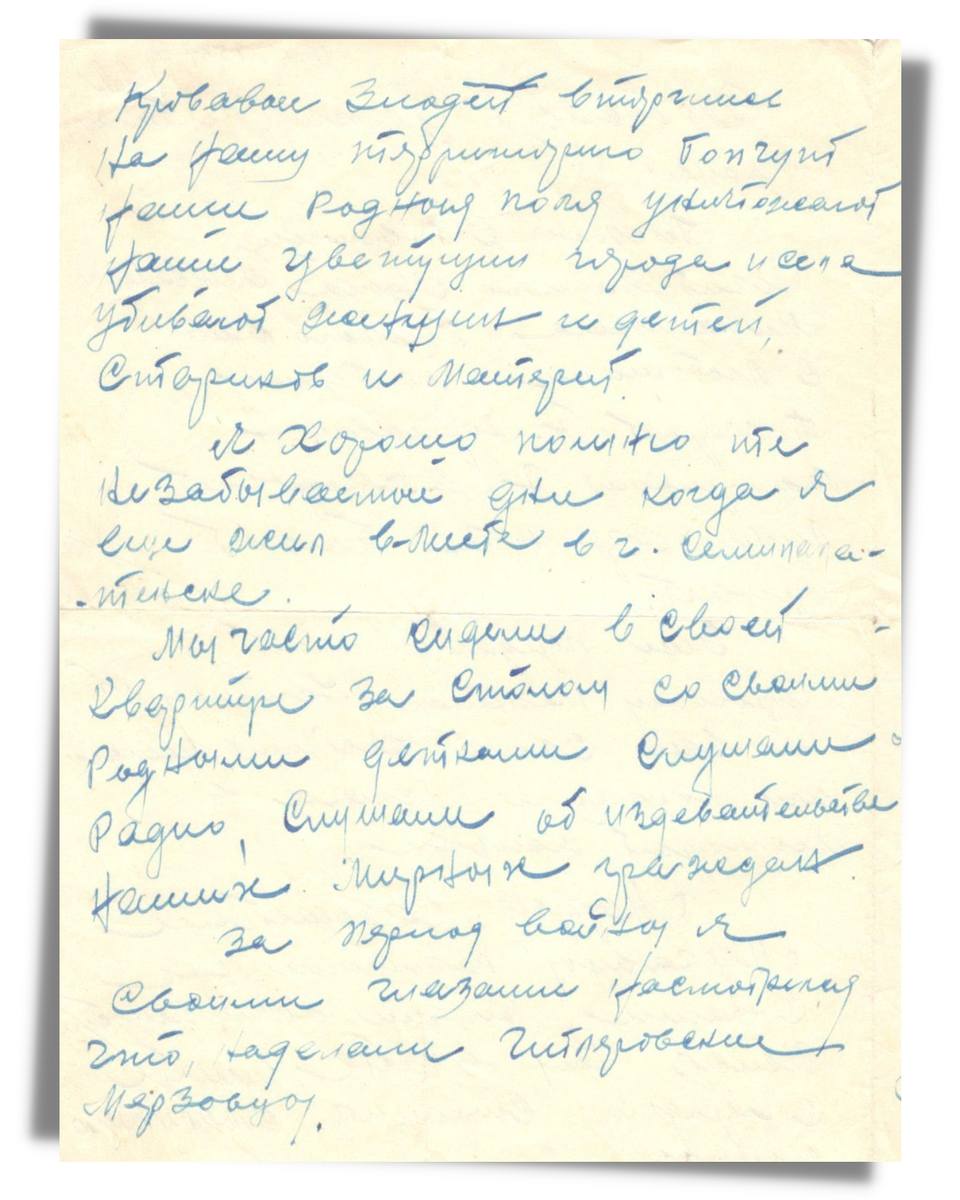 Кровавои Злодей вторгнлсс
На Нашу тярриторию Топчут
Наши Родныя поля уничтожают
Наши цветущии города и села
Убивают Женщин и детей,
Стариков и Матерей.
Я Хорошо помню те
Незабываемои дни когда я
еще жил вместе в г. Семипала-
-тинске.
Мы часто сидели в своей -
Квартире за Столом со своими
Родными детками слушали
Радио, Слушали об издевательстве
Наших Мирных граждан.
За период войны я
Своими глазами Насмотрелся
что, наделали Гитляровские
Мярзовцы.